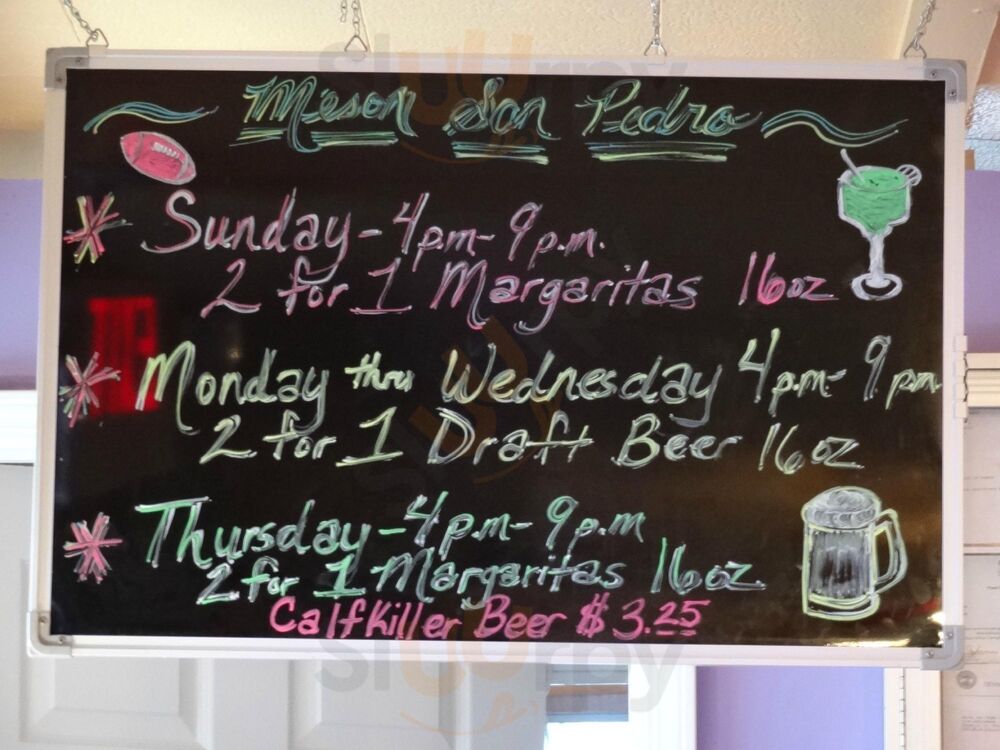 Meson San Pedro
Sunday - 4pm - 9p.m.
2 for 1 Margaritas 16oz
Monday thru Wednesday 4p.m- 9pm
2 for 1 Draft Beer 16oz
Thursday - 4p.m - 9p.m
2 for 1 Margaritas 16oz
CalfKiller Beer $3.25
Sluurpy
Sluurpy
Sluurpy